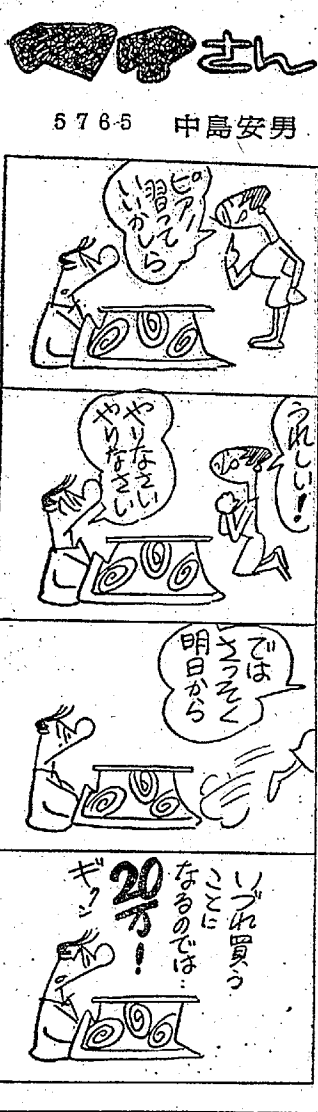 ママ子さん
5765
中島安男
ピアノ
習って
いいかしら
うれしい！
やりなさい
やりなさい
では
さっそく
明日から
いづれ買う
ことに
なるのでは…
20万！
ギクッ